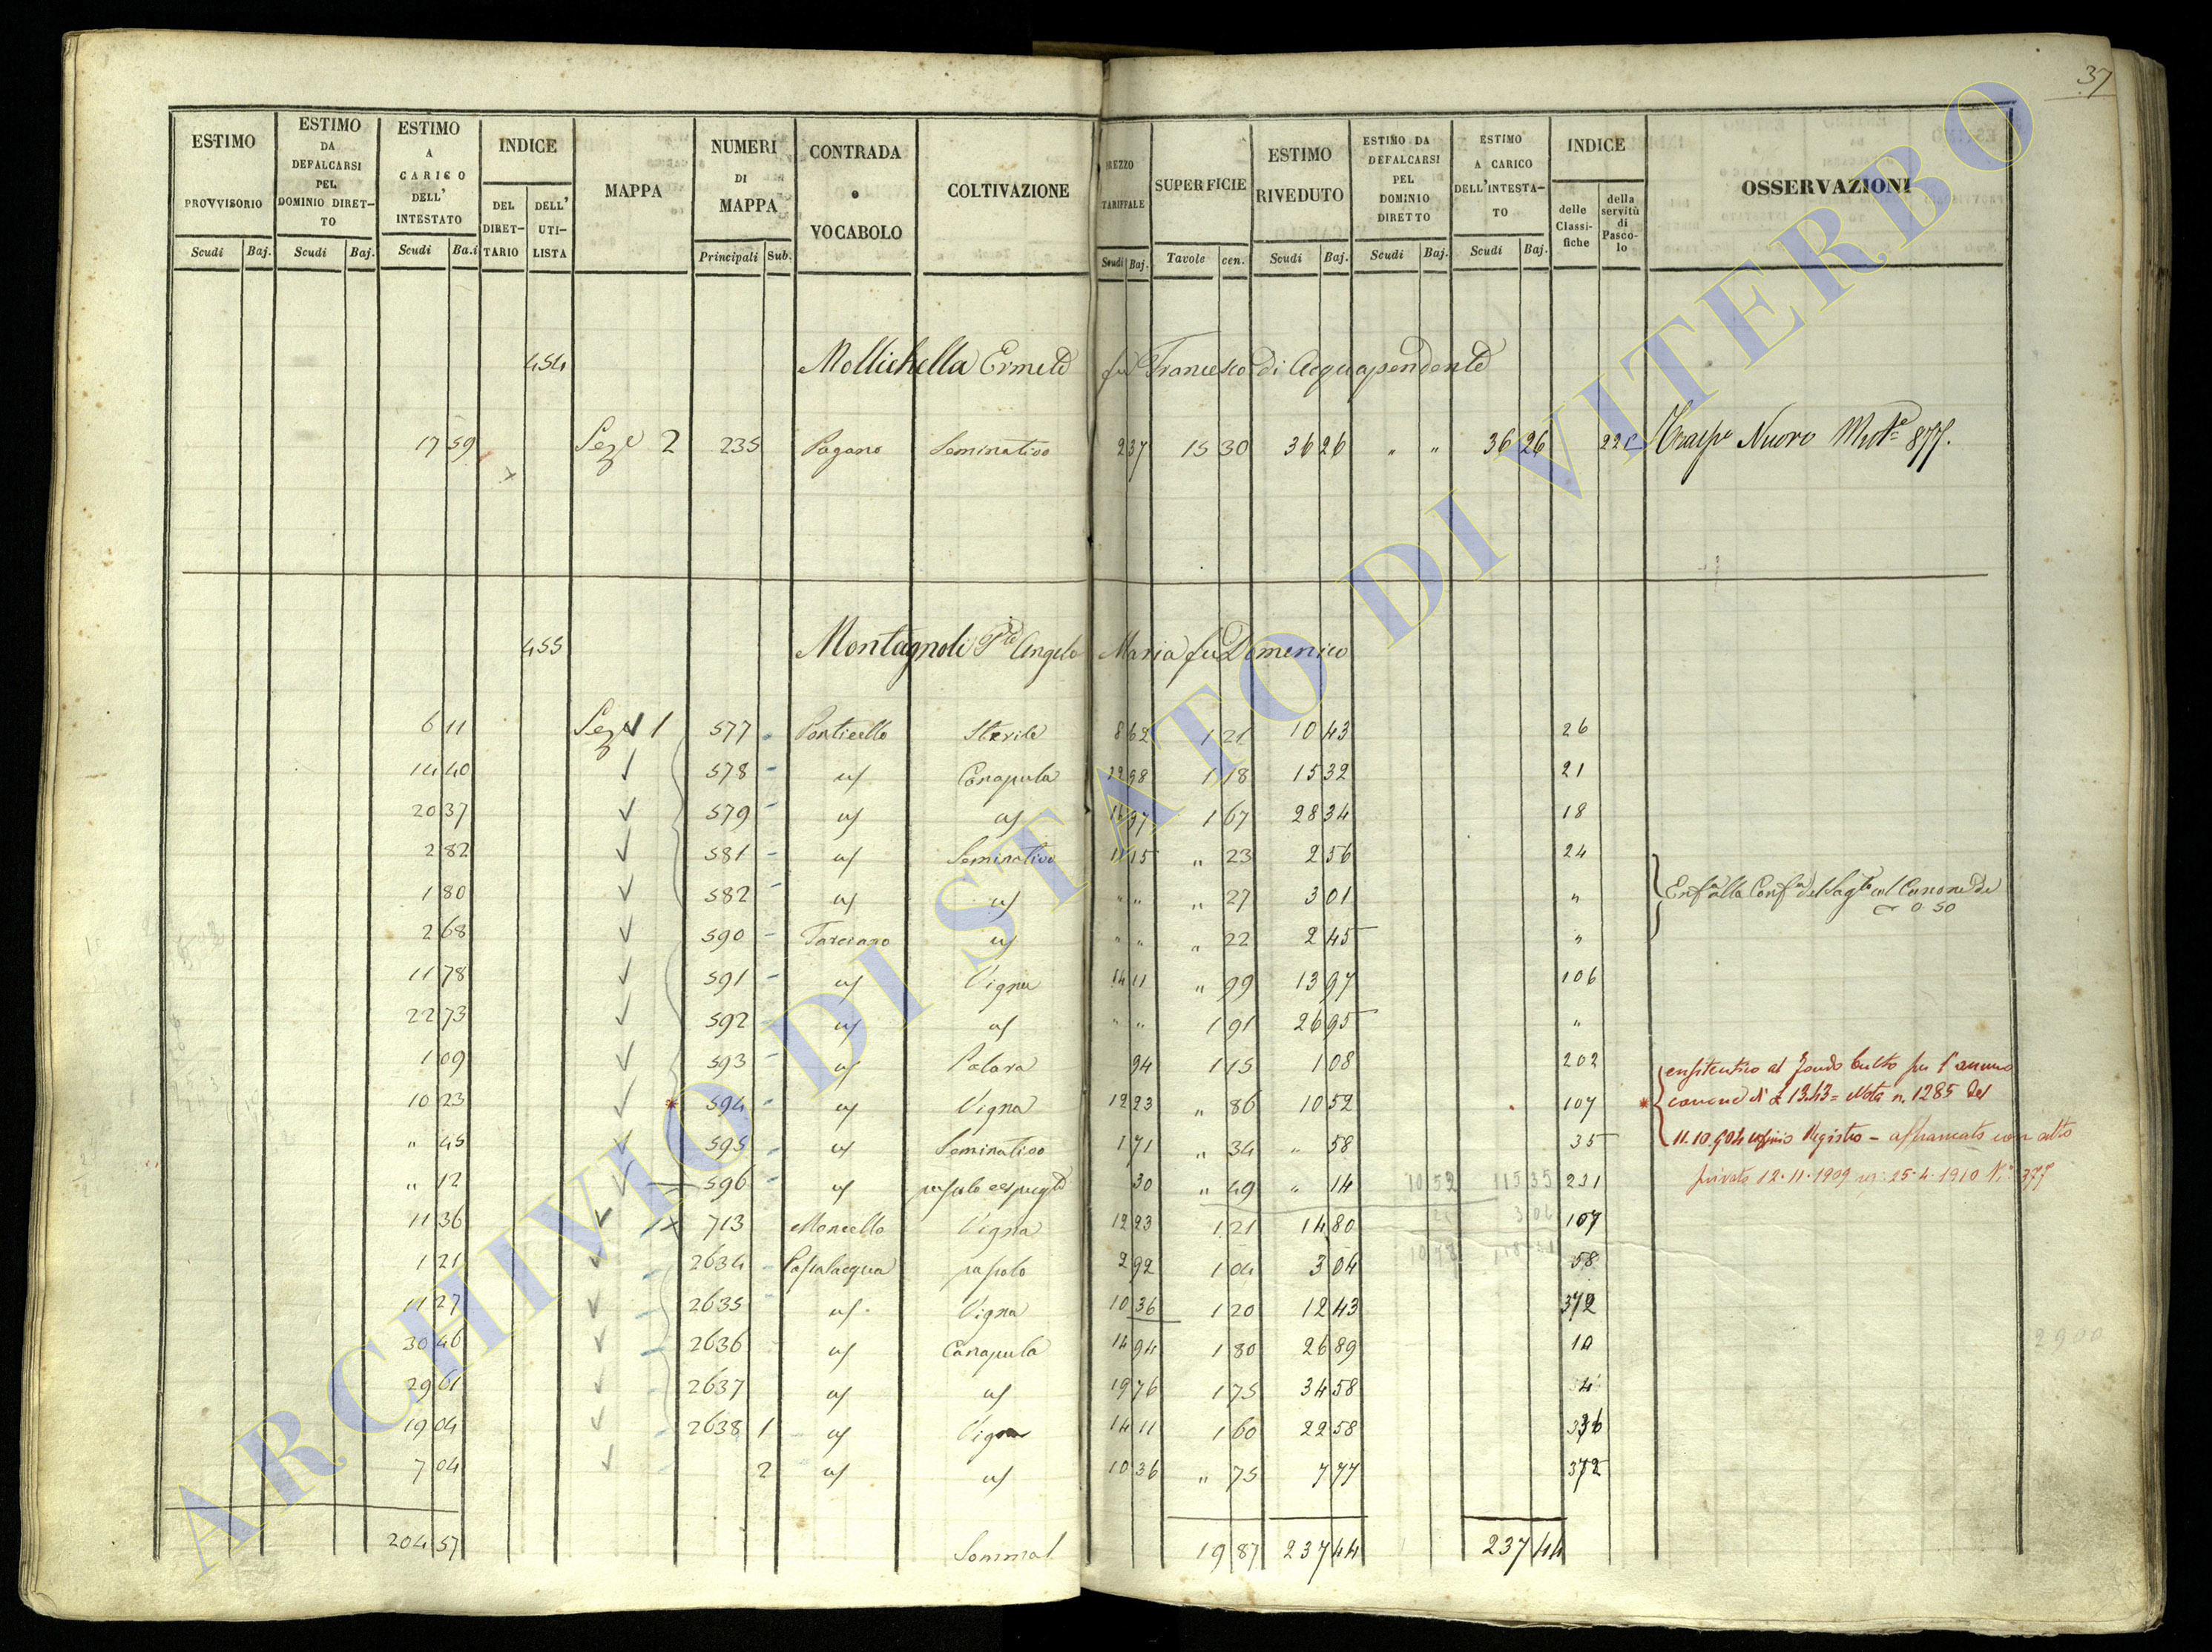 37
ESTIMO PROVVISORIO Scudi Baj.
ESTIMO DA DEFALCARSI PEL DOMINIO DIRET-TO Scudi Baj.
ESTIMO A CARICO DELL' INTESTATO Scudi Ba.i
INDICE DEL DIRET-TARIO DELL' UTI-LISTA
MAPPA
NUMERI DI MAPPA Principali Sub.
CONTRADA o VOCABOLO
COLTIVAZIONE
PREZZO TARIFFALE Scudi Baj.
SUPERFICIE Tavole cen.
ESTIMO RIVEDUTO Scudi Baj.
ESTIMO DA DEFALCARSI PEL DOMINIO DIRETTO Scudi Baj.
ESTIMO A CARICO DELL'INTESTA-TO Scudi Baj.
INDICE delle Classi-fiche della servitù di Pasco-lo
OSSERVAZIONI
454 Mollichella Ermete fu Francesco di Acquapendente
17 59 Seze 2 235 Pagano Seminativo 2 37 15 30 36 26 " " 36 26 Nuovo 877.
455 Montagnoli Angelo Maria fu Domenico
6 11 Seze 1 577 Ponticello Sterile 8 62 1 21 10 43 26
14 40 578 uf Canapula 12 98 1 18 15 32 21
20 37 579 uf uf 16 97 1 67 28 34 18
2 82 581 uf Seminativo 11 15 " 23 2 56 24
1 80 582 uf uf " " " 27 3 01 " Enf alla Conf del Sagto col Canone di 0.50
2 68 590 uf " " " 22 2 45 "
11 78 591 uf Vigna 14 11 " 99 13 97 106
22 73 592 uf uf " " 1 91 26 95 "
1 09 593 uf 94 1 15 1 08 202 enfiteutico al fondo Culto per l'annuo
10 23 594 uf Vigna 12 23 " 86 10 52 107 canone di £ 13.43= Nota n. 1285 del
" 45 595 uf Seminativo 1 71 " 34 " 58 35 11.10.904 Registro - affrancato con atto
" 12 596 uf 30 " 49 " 14 10 52 115 35 231 privato 12.11.1909 25.4.1910 N. 377
11 36 713 Moncello Vigna 12 23 1 21 14 80 107
1 21 2634 Passalacqua pascolo 2 92 1 04 3 04 58
11 27 2635 uf Vigna 10 36 1 20 12 43 372
30 46 2636 uf Canapula 14 94 1 80 26 89 10
29 61 2637 uf uf 19 76 1 75 34 58 4
19 04 2638 1 uf Vigna 14 11 1 60 22 58 336
7 04 2 uf uf 10 36 " 75 7 77 372
204 57 Somma 19 87 237 44 237 44
2900
ARCHIVIO DI STATO DI VITERBO